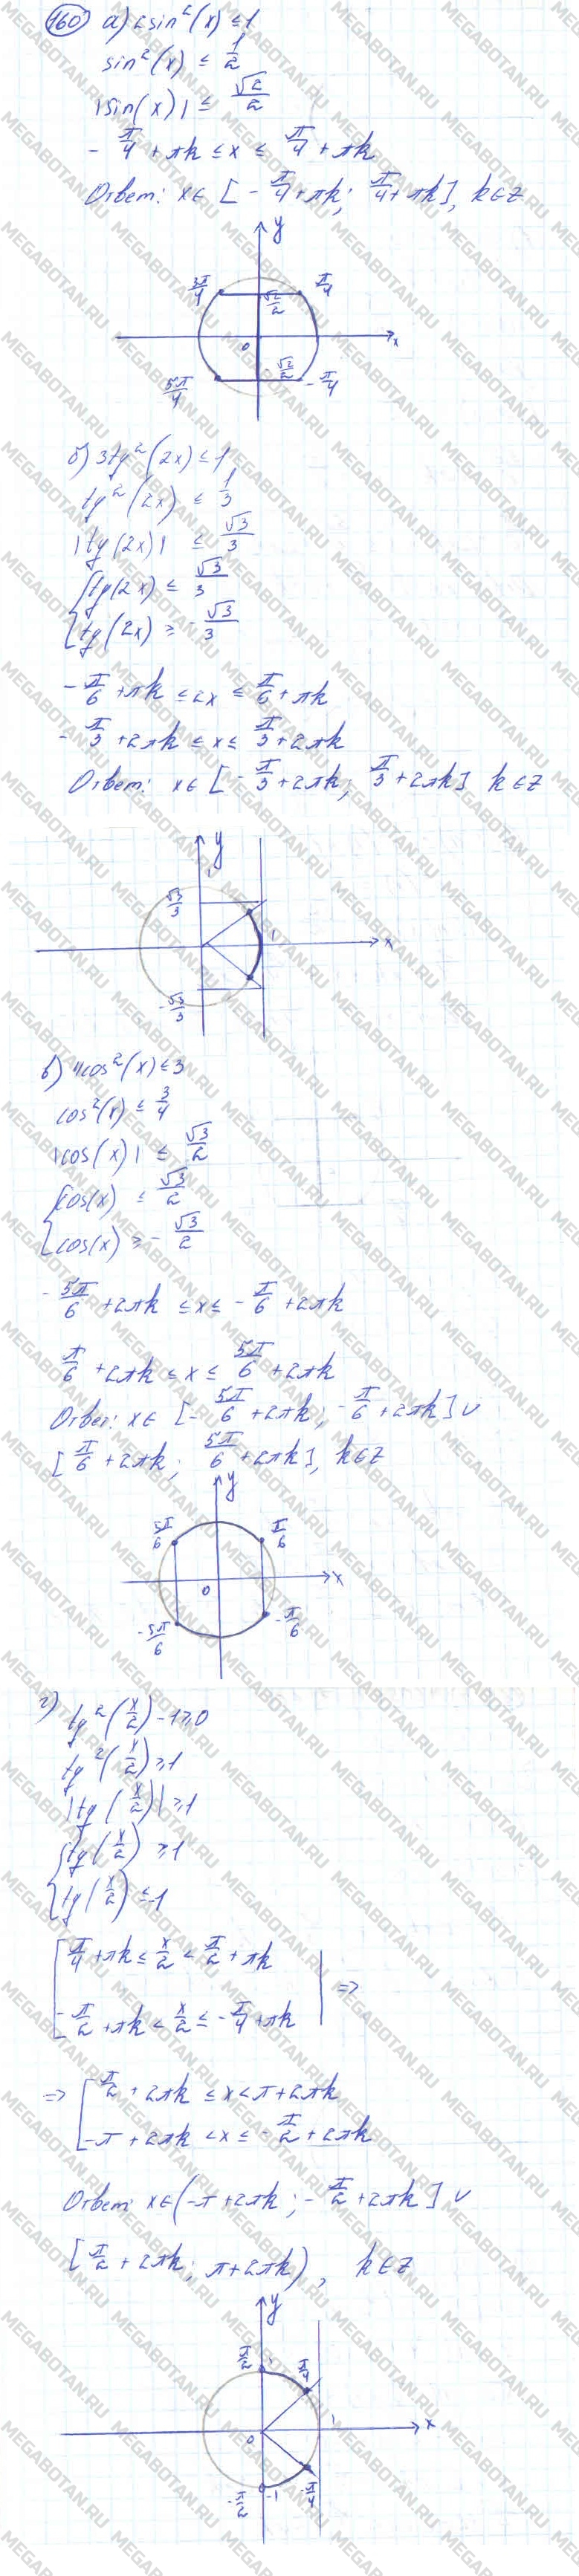 160 а) 2sin²(x) ≤ 1
sin²(x) ≤ 1/2
|sin(x)| ≤ √2/2
- π/4 + πk ≤ x ≤ π/4 + πk
Ответ: x ∈ [- π/4 + πk; π/4 + πk], k ∈ Z
y
3π/4 √2/2 π/4
0 x
5π/4 -√2/2 -π/4
б) 3tg²(2x) ≤ 1
tg²(2x) ≤ 1/3
|tg(2x)| ≤ √3/3
{tg(2x) ≤ √3/3
tg(2x) ≥ -√3/3
- π/6 + πk ≤ 2x ≤ π/6 + πk
- π/3 + 2πk ≤ x ≤ π/3 + 2πk
Ответ: x ∈ [- π/3 + 2πk; π/3 + 2πk] k ∈ Z
y
1
√3/3
1 x
-√3/3
в) 4cos²(x) ≤ 3
cos²(x) ≤ 3/4
|cos(x)| ≤ √3/2
{cos(x) ≤ √3/2
cos(x) ≥ -√3/2
- 5π/6 + 2πk ≤ x ≤ - π/6 + 2πk
π/6 + 2πk ≤ x ≤ 5π/6 + 2πk
Ответ: x ∈ [- 5π/6 + 2πk; - π/6 + 2πk] ∪
[π/6 + 2πk; 5π/6 + 2πk], k ∈ Z
y
5π/6 π/6
0 x
-5π/6 -π/6
г) tg²(x/2) - 1 ≥ 0
tg²(x/2) ≥ 1
|tg(x/2)| ≥ 1
{tg(x/2) ≥ 1
tg(x/2) ≤ -1
[π/4 + πk ≤ x/2 < π/2 + πk
- π/2 + πk < x/2 ≤ - π/4 + πk | =>
=> [π/2 + 2πk ≤ x < π + 2πk
-π + 2πk < x ≤ - π/2 + 2πk
Ответ: x ∈ (-π + 2πk; - π/2 + 2πk] ∪
[π/2 + 2πk; π + 2πk), k ∈ Z
y
π/2 1 π/4
0 1 x
-π/2 -1 -π/4
MEGABOTAN.RU